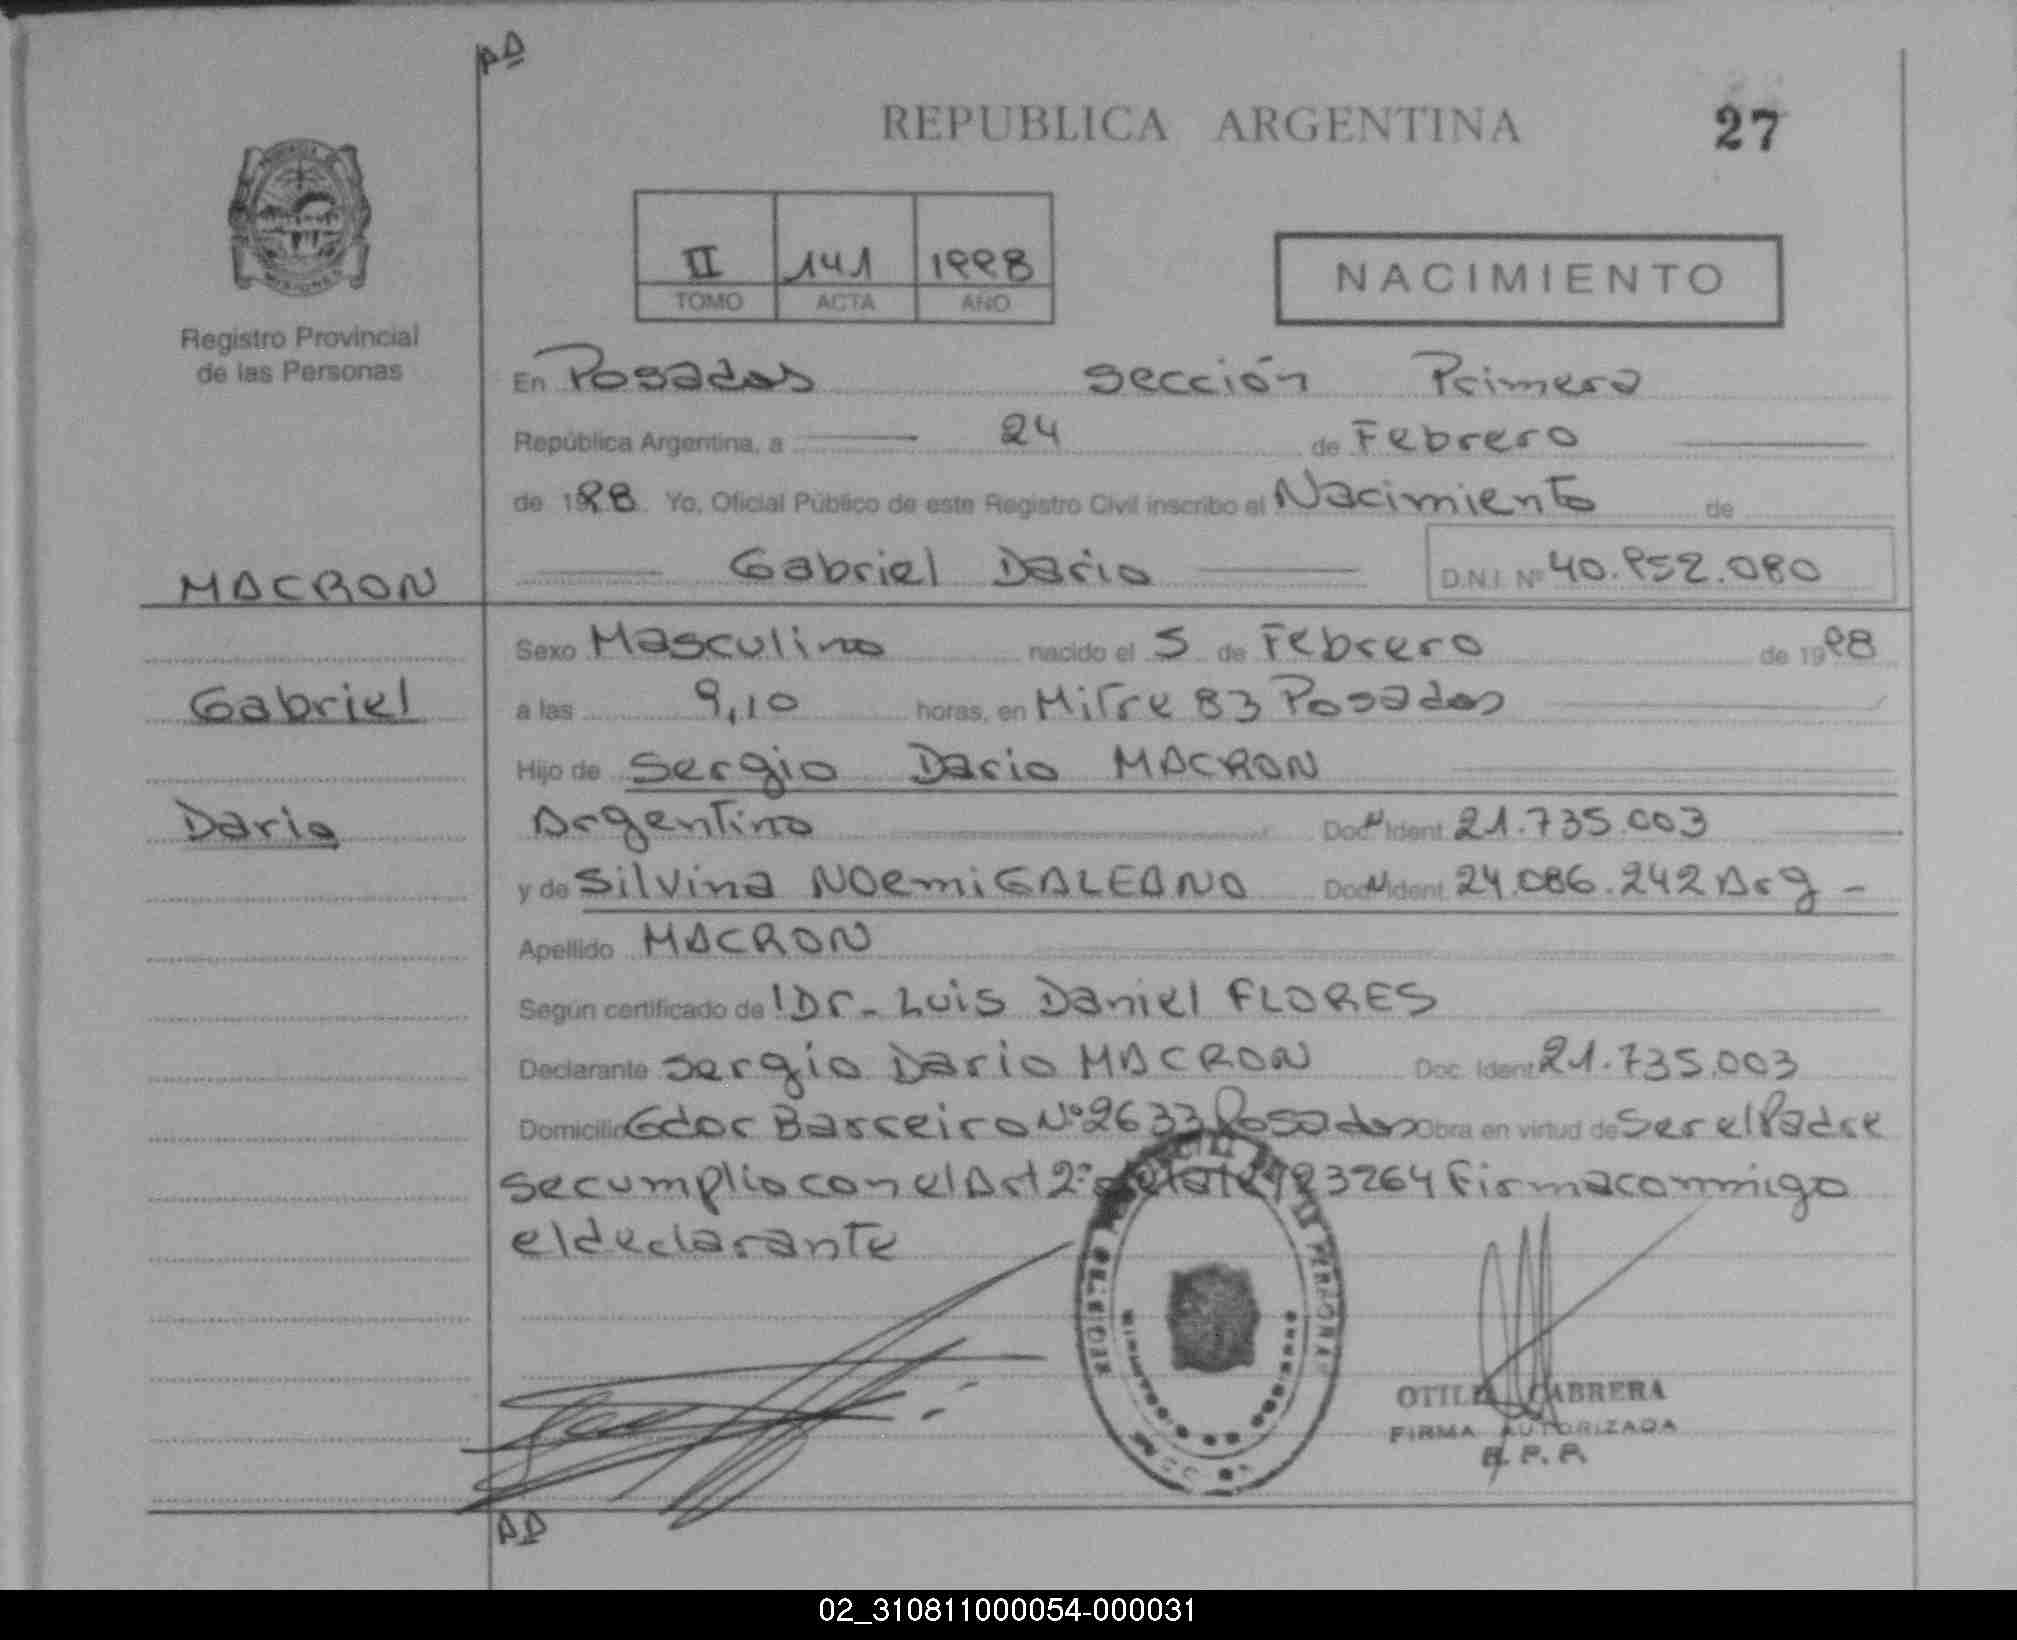 AD
REPUBLICA ARGENTINA
27
II 141 1998
TOMO ACTA AÑO
NACIMIENTO
Registro Provincial
de las Personas
En Posadas Sección Primera
República Argentina, a 24 de Febrero
de 1998. Yo, Oficial Público de este Registro Civil inscribo el Nacimiento de
MACRON
Gabriel Dario D.N.I. Nº 40.952.080
Sexo Masculino nacido el 5 de Febrero de 1998
Gabriel
a las 9,10 horas, en Mitre 83 Posadas
Hijo de Sergio Dario MACRON
Dario
Argentino Doc. Ident. 21.735.003
y de Silvina NOemi GALEANO Doc. Ident. 24.086.242 Arg -
Apellido MACRON
Según certificado de Dr. Luis Daniel FLORES
Declarante Sergio Dario MACRON Doc. Ident. 21.735.003
Domicilio Gdor Barreiro Nº 2633 Posadas Obra en virtud de Ser el Padre
se cumplio con el Art 2º 23264 Firma conmigo
el declarante
OTILIA CABRERA
FIRMA AUTORIZADA
R. P. P.
AD
02_310811000054-000031